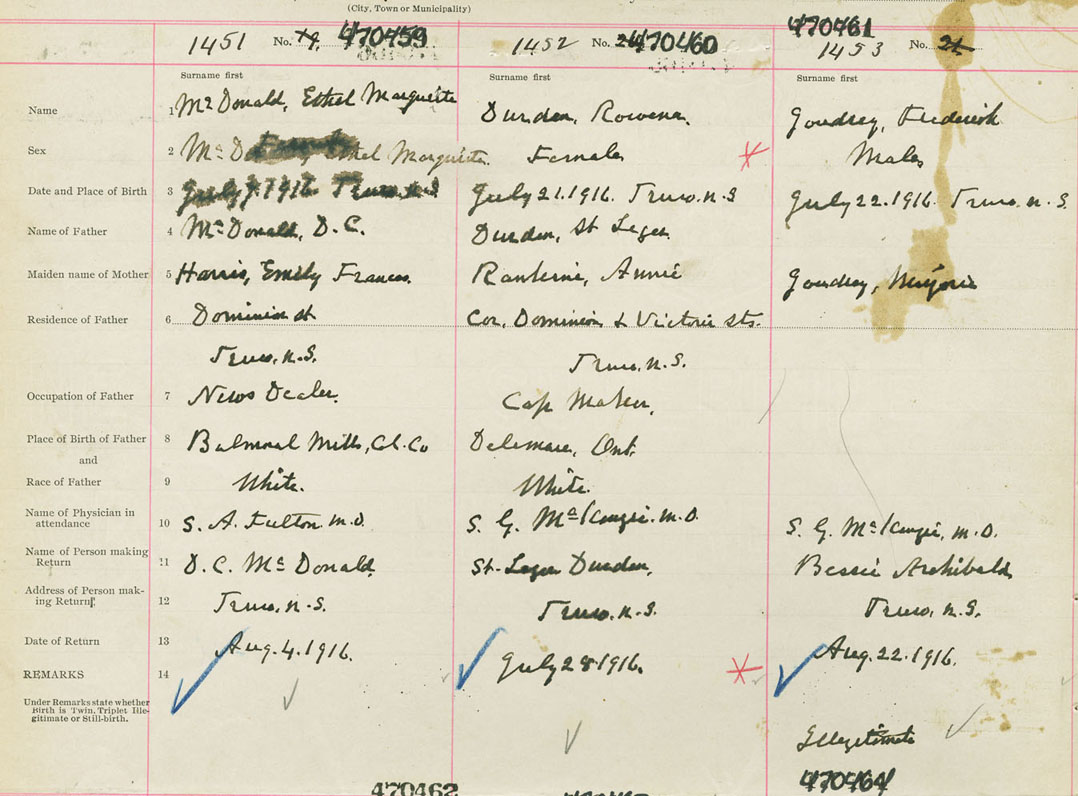 (City, Town or Municipality)
470461
1451 No. 19. 470459 1452 No. 470460 1453 No. 21.
Surname first Surname first Surname first
Name 1 McDonald, Ethel Marguerite Durden, Rowena. Goudrey, Frederick
Sex 2 Mc Ethel Marguerite. Female Male
Date and Place of Birth 3 July 7. 1916. Truro N.S July 21. 1916. Truro. N.S July 22. 1916. Truro. N.S.
Name of Father 4 McDonald, D. C. Durden, St Leger.
Maiden name of Mother 5 Harris, Emily Frances. Annie Goudrey, Marjorie
Residence of Father 6 Dominion st Cor. Dominion & Victoria sts.
Truro. N.S. Truro. N.S.
Occupation of Father 7 News Dealer. Cap Maker.
Place of Birth of Father 8 Balmoral Mills, Col. Co Delemare, Ont.
and
Race of Father 9 White. White.
Name of Physician in
attendance 10 S. A. Fulton M.D. S. G. McKenzie. M.D. S. G. McKenzie, M.D.
Name of Person making
Return 11 D. C. McDonald. St. Leger Durden. Bessie Archibald
Address of Person mak-
ing Return 12 Truro, N.S. Truro. N.S. Truro, N.S.
Date of Return 13 Aug. 4. 1916. July 28. 1916. Aug. 22. 1916.
REMARKS 14
Under Remarks state whether
Birth is Twin, Triplet Ille-
gitimate or Still-birth.
Illegitimate
470462 470464